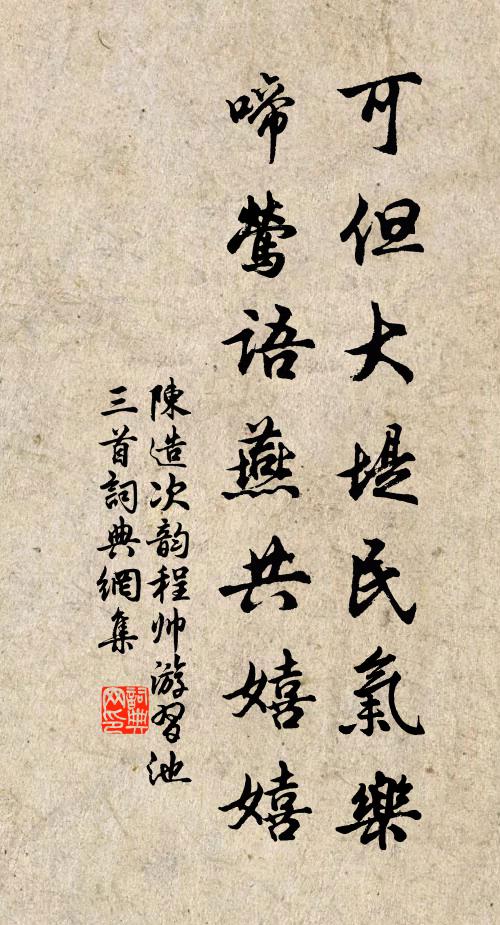 可但大堤民氣樂
啼鶯語燕共嬉嬉
陳造次韵程帅游習池
三首詞典網集
詞典
网印